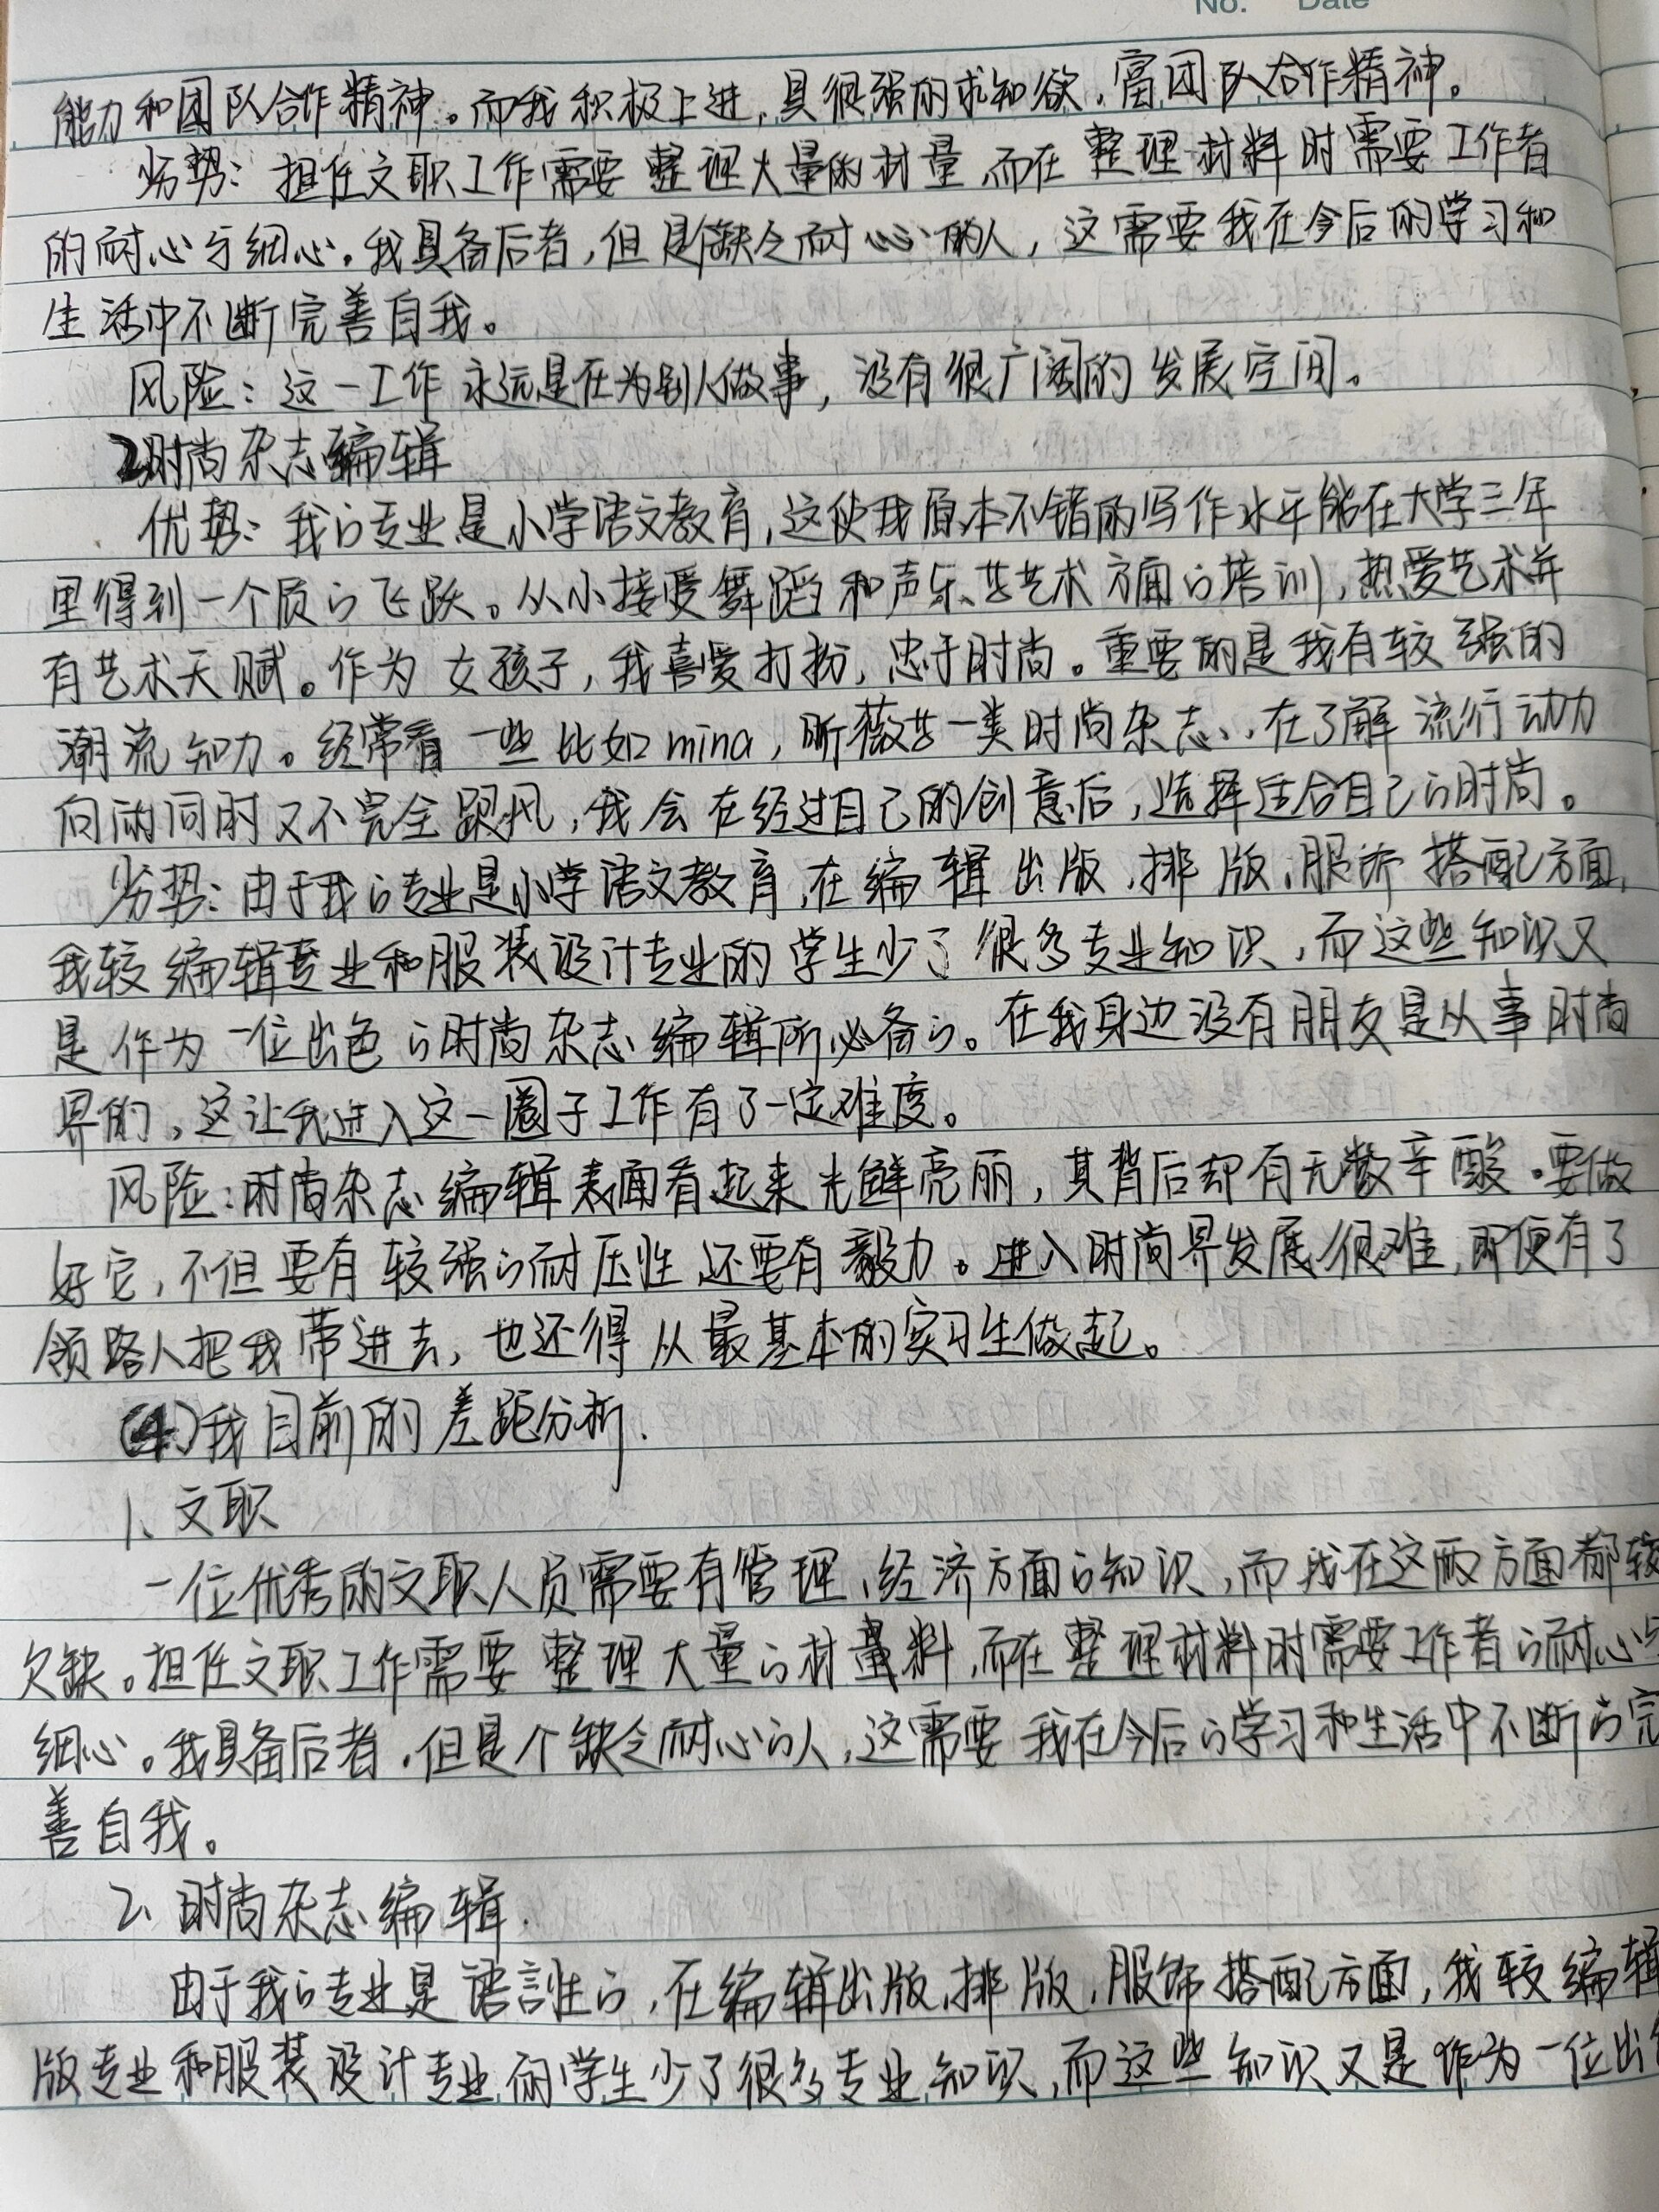 No. Date
能力和团队合作精神。而我积极上进,具很强的求知欲,富团队合作精神。
劣势:担任文职工作需要整理大量的材量,而在整理材料时需要工作者
的耐心与细心。我具备后者,但是缺乏耐心的人,这需要我在今后的学习和
生活中不断完善自我。
风险:这一工作永远是在为别人做事,没有很广阔的发展空间。
2.时尚杂志编辑
优势:我的专业是小学语文教育,这使我原本不错的写作水平能在大学三年
里得到一个质的飞跃。从小接受舞蹈和声乐等艺术方面的培训,热爱艺术并
有艺术天赋。作为女孩子,我喜爱打扮,忠于时尚。重要的是我有较强的
潮流知力。经常看一些比如mina,昕薇等一类时尚杂志、在了解流行动力
向的同时又不完全跟风,我会在经过自己的创意后,选择适合自己的时尚。
劣势:由于我的专业是小学语文教育,在编辑出版,排版,服饰搭配方面,
我较编辑专业和服装设计专业的学生少了很多专业知识,而这些知识又
是作为一位出色的时尚杂志编辑所必备的。在我身边没有朋友是从事时尚
界的,这让我进入这一圈子工作有了一定难度。
风险:时尚杂志编辑表面看起来光鲜亮丽,其背后却有无数辛酸。要做
好它,不但要有较强的耐压性,还要有毅力。进入时尚界发展很难,即便有了
领路人把我带进去,也还得从最基本的实习生做起。
(4)我目前的差距分析.
1、文职
一位优秀的文职人员需要有管理、经济方面的知识,而我在这两方面都较
欠缺。担任文职工作需要整理大量的材料,而在整理材料时需要工作者的耐心与
细心。我具备后者,但是个缺乏耐心的人,这需要我在今后的学习和生活中不断的完
善自我。
2、时尚杂志编辑.
由于我的专业是语言性的,在编辑出版,排版,服饰搭配方面,我较编辑
版专业和服装设计专业的学生少了很多专业知识,而这些知识又是作为一位出色